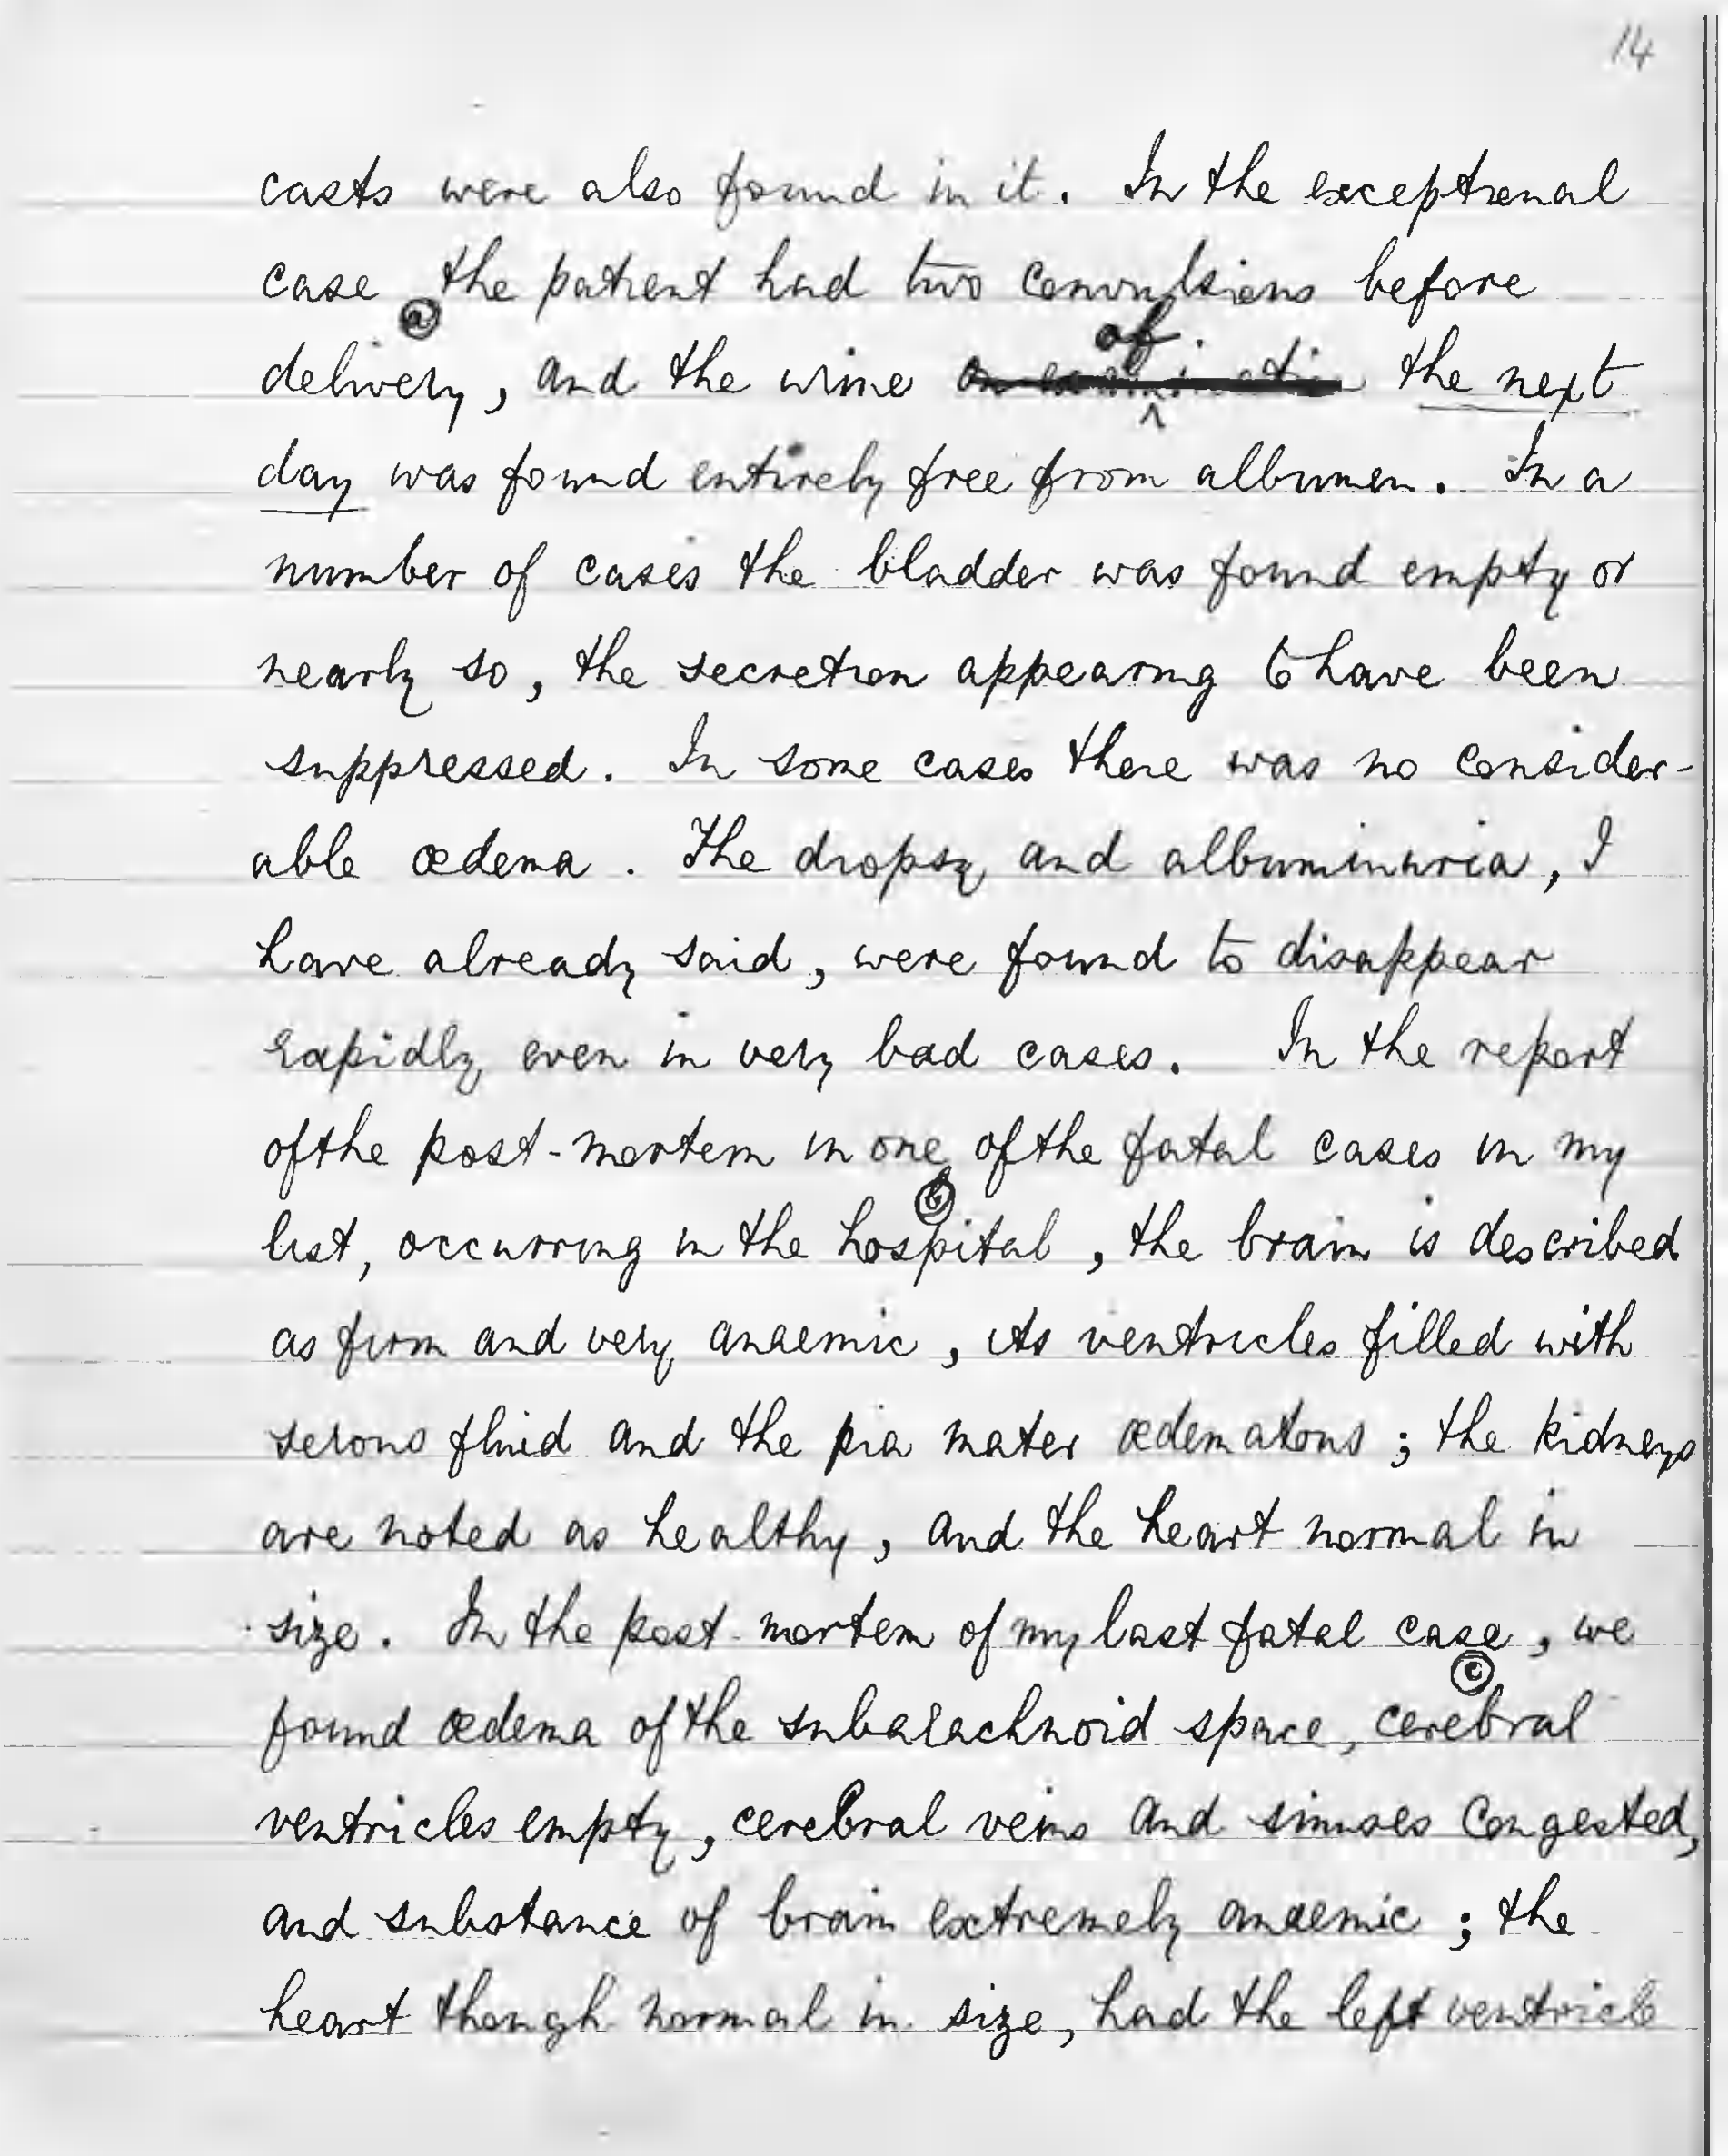 14
casts were also found in it. In the exceptional
case ⓐ the patient had two convulsions before
delivery, and the urine ~~on examination~~ of the next
day was found entirely free from albumen. In a
number of cases the bladder was found empty or
nearly so, the secretion appearing to have been
suppressed. In some cases there was no consider-
able œdema. The dropsy and albuminuria, I
have already said, were found to disappear
rapidly even in very bad cases. In the report
of the post-mortem in one of the fatal cases in my
list, occurring in the hospital ⓑ, the brain is described
as firm and very anaemic, its ventricles filled with
serous fluid and the pia mater œdematous; the kidneys
are noted as healthy, and the heart normal in
size. In the post-mortem of my last fatal case ⓒ, we
found œdema of the subarachnoid space, cerebral
ventricles empty, cerebral veins and sinuses congested,
and substance of brain extremely anaemic; the
heart though normal in size, had the left ventricle